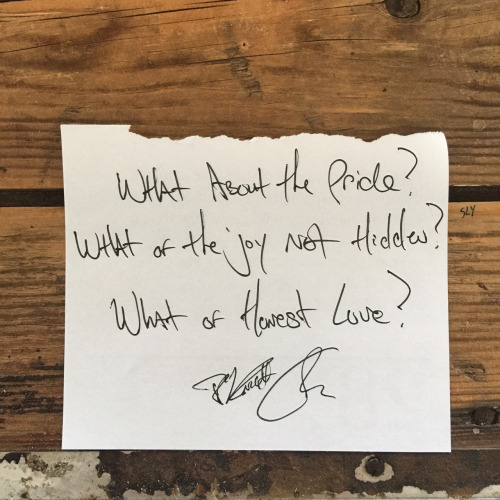 What About the Pride?
What of the joy Not Hidden?
What of Honest Love?
SLY